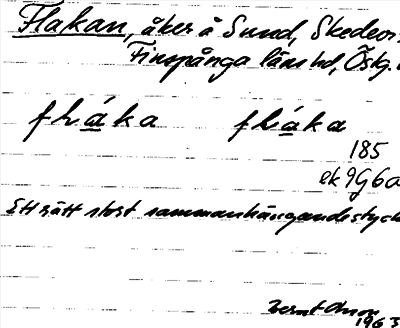 Flakan, åker å Sund, Skedevi
Finspånga läns hd, Östg.
flàka flàka
185
ek 9G6a
Ett rätt stort sammanhängande styck
1963